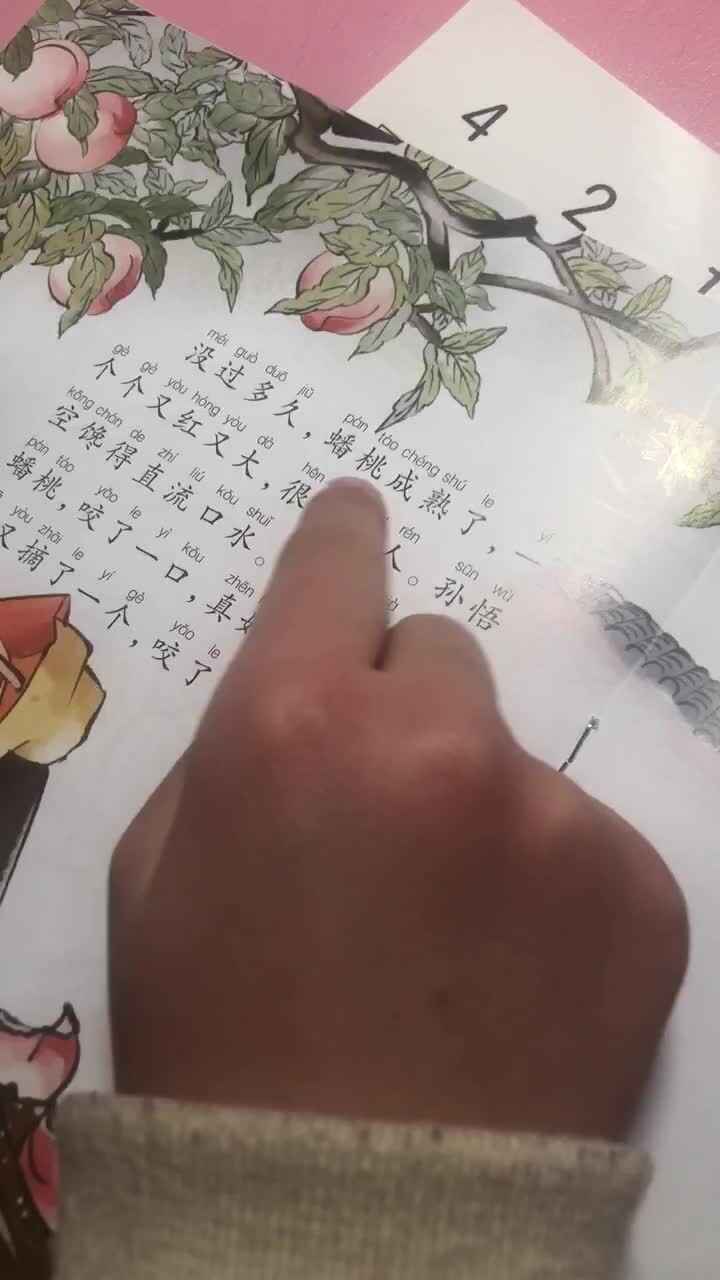 4 2 1
méi guò duō jiǔ pán táo chéng shú le yí
没过多久，蟠桃成熟了，一
gè gè yòu hóng yòu dà hěn rén sūn wù
个个又红又大，很人。孙悟
kōng chán de zhí liú kǒu shuǐ
空馋得直流口水。
pán táo yǎo le yì kǒu zhēn
蟠桃，咬了一口，真
yòu zhāi le yí gè yǎo le
又摘了一个，咬了